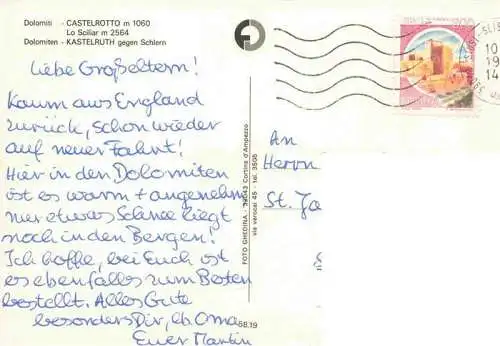 Dolomiti - CASTELROTTO m 1060
Lo Sciliar m 2564
Dolomiten - KASTELRUTH gegen Schlern
Liebe Großeltern!
Kaum aus England
zurück, schon wieder
auf neuer Fahrt!
Hier in den Dolomiten
ist es warm + angenehm
nur etwas Schnee liegt
noch in den Bergen!
Ich hoffe, bei Euch ist
es ebenfalls zum Besten
bestellt. Alles Gute
besonders Dir, lb. Oma
Euer Martin
FOTO GHEDINA - 32043 Cortina d'Ampezzo
via verocai 45 - tel. 3505
68.19
10
19
14
An
Herrn
St. Ja